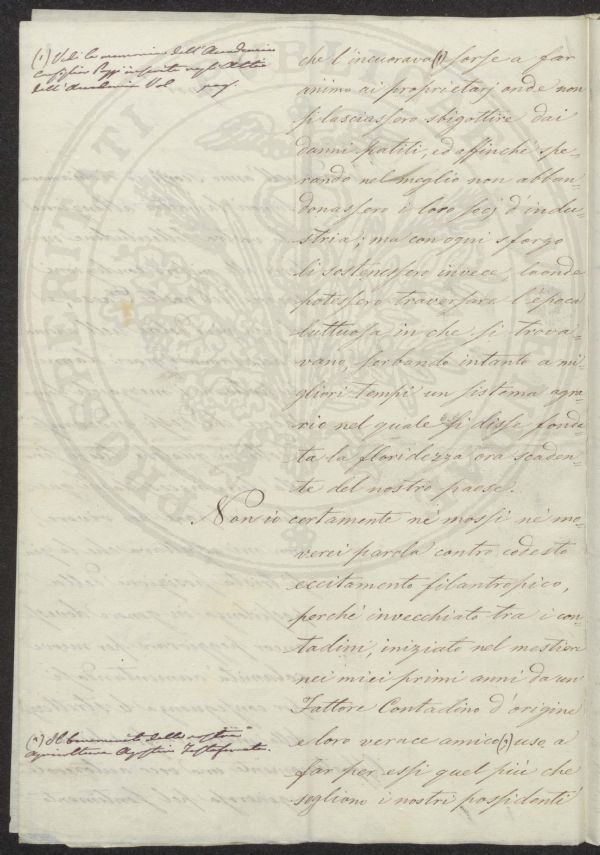 (1) Vedi la memoria dell'Accademico
Consiglio Pezzi inserita negli Atti
dell'Accademia Vol pag.
che l'incuorava (1) forse a far
animo ai proprietarj onde non
si lasciassero sbigottire dai
danni patiti, ed affinché spe-
rando nel meglio non abban-
donassero i loro socj d'indu-
stria; ma con ogni sforzo
li sostenessero invece, laonde
potessero traversare l'época
luttuosa in che si trova-
vano, serbando intanto a mi-
gliori tempi un sistema agra-
rio nel quale si disse fonda-
ta la floridezza ora scaden-
te del nostro paese.
Non io certamente né mossi né mo-
verei parola contro codesto
eccitamento filantropico,
perché invecchiato tra i con-
tadini, iniziato nel mestiere
nei miei primi anni da un
Fattore Contadino d'origine
e loro verace amico (2) uso a
far per essi quel più che
sogliono i nostri possidenti
(2) Il benemerito della nostra
agricoltura Agostino Testaferrata.
PROSPERITATI